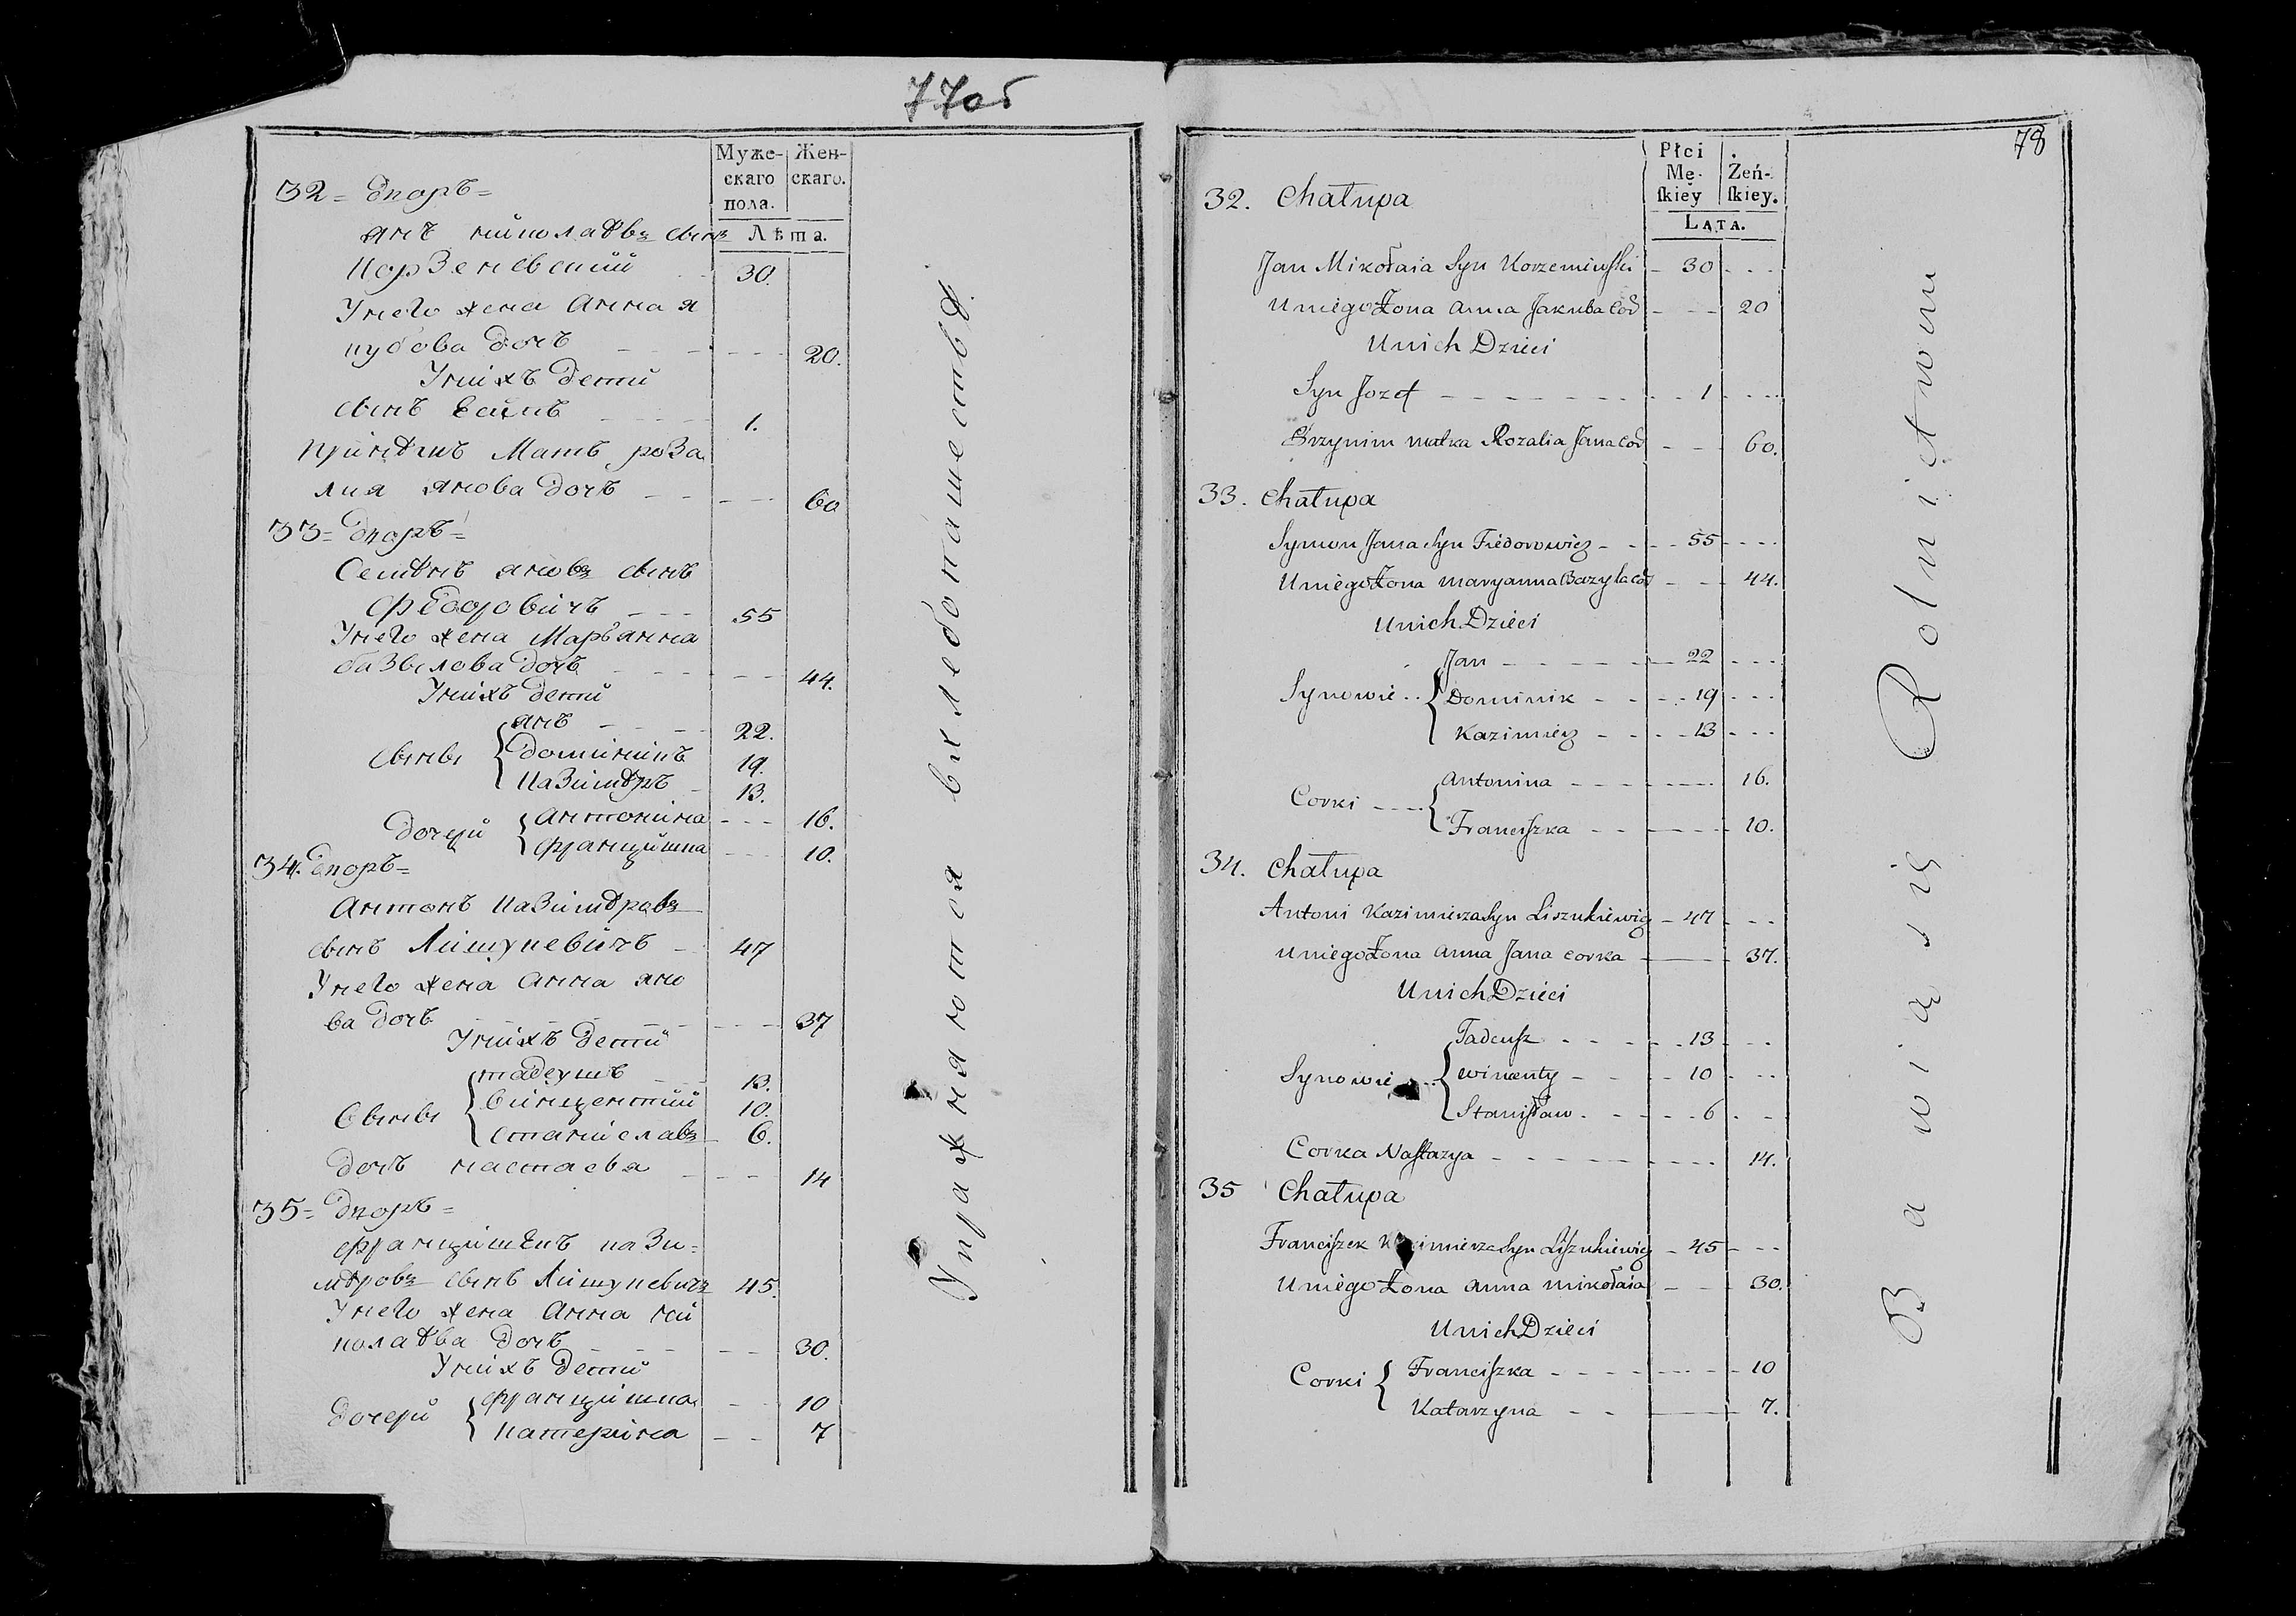 77об
Муже- Жен-
скаго скаго.
пола.
Лѣта.
32 = Дворъ =
Янъ Николаевъ сынъ
Корзеневский 30.
У него жена Анна Я
кубова дочь 20.
У нихъ дети
сынъ 1.
При немъ Мать Роза
лия Янова дочь 60
33 = Дворъ =
Семенъ Яновъ сынъ
Федоровичъ 55
У него жена Марьянна
Базылова дочь 44.
У нихъ дети
Янъ 22.
Сыны { Доминикъ 19.
Казимеръ 13.
Дочери { Антонина 16.
Францишка 10.
34. Дворъ =
Антонъ Казимеровъ
сынъ Лишукевичъ 47
У него жена Анна Яно
ва дочь 37
У нихъ дети
Тадеушъ 13.
Сыны { Винцентий 10.
Станиславъ 6.
Дочь Настасья 14
35 = Дворъ =
Францишекъ Кази =
меровъ сынъ Лишукевичъ 45.
У него жена Анна Ни
колаева дочь 30.
У нихъ дети
Дочери { Францишка 10
Катерина 7
Упражняются въ хлебопашестве.
78
Płci Żeń-
Mę- ſkiey.
ſkiey
LATA.
32. Chałupa
Jan Mikołaia Syn Korzeniewſki 30
U niego Żona Anna Jakuba Cor 20
U nich Dzieci
Syn Jozef 1
Przynim matka Rozalia Jana Cor 60.
33. Chałupa
Symon Jana Syn Fiedorowicz 55
U niego Żona Maryanna Bazyla Cor 44.
U nich Dzieci
Jan 22
Synowie { Dominik 19
Kazimierz 13
Corki { Antonina 16.
Franciſzka 10.
34. Chałupa
Antoni Kazimierza Syn Liszukiewicz 47
U niego Żona Anna Jana corka 37.
U nich Dzieci
Tadeuſz 13
Synowie { Wincenty 10
Staniſław 6
Corka Naſtazya 14.
35 Chałupa
Franciſzek Kazimierza Syn Liſzukiewicz 45
U niego Żona Anna Mikołaia 30.
U nich Dzieci
Corki { Franciſzka 10
Katarzyna 7.
Bawią się Rolnictwem